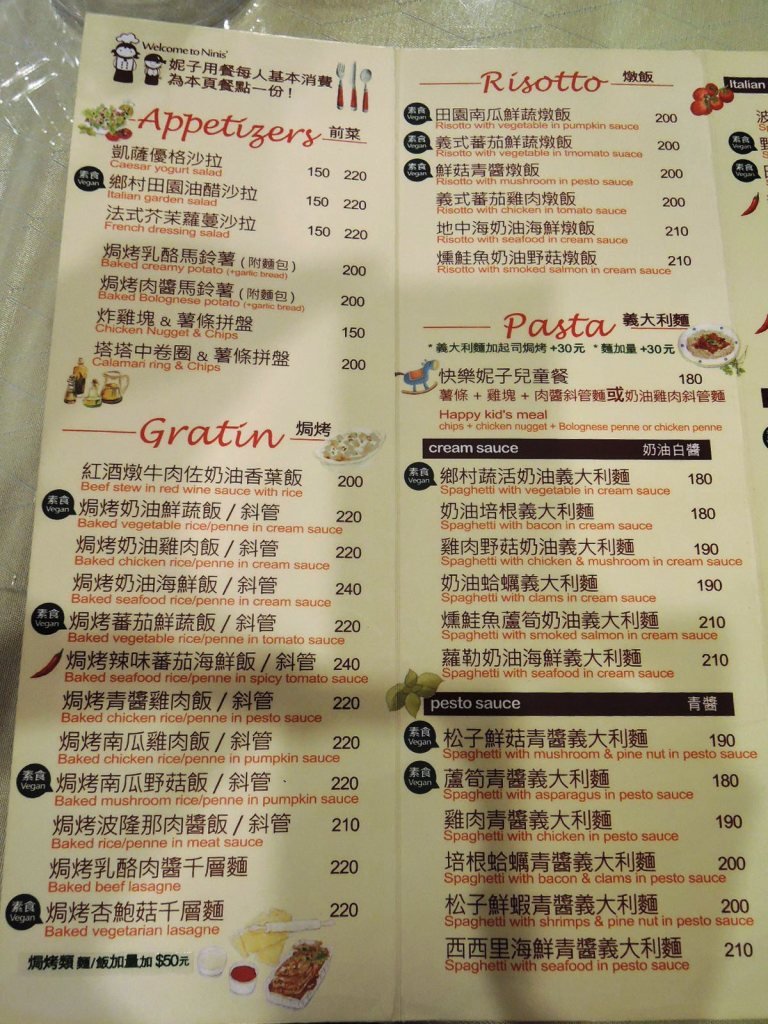 Welcome to Ninis'
妮子用餐每人基本消費
為本頁餐點一份！
Appetizers 前菜
凱薩優格沙拉 150 220
Caesar yogurt salad
素食 Vegan 鄉村田園油醋沙拉 150 220
Italian garden salad
法式芥茉蘿蔓沙拉 150 220
French dressing salad
焗烤乳酪馬鈴薯 (附麵包) 200
Baked creamy potato (+garlic bread)
焗烤肉醬馬鈴薯 (附麵包) 200
Baked Bolognese potato (+garlic bread)
炸雞塊 & 薯條拼盤 150
Chicken Nugget & Chips
塔塔中卷圈 & 薯條拼盤 200
Calamari ring & Chips
Gratin 焗烤
紅酒燉牛肉佐奶油香葉飯 200
Beef stew in red wine sauce with rice
素食 Vegan 焗烤奶油鮮蔬飯 / 斜管 220
Baked vegetable rice/penne in cream sauce
焗烤奶油雞肉飯 / 斜管 220
Baked chicken rice/penne in cream sauce
焗烤奶油海鮮飯 / 斜管 240
Baked seafood rice/penne in cream sauce
素食 Vegan 焗烤蕃茄鮮蔬飯 / 斜管 220
Baked vegetable rice/penne in tomato sauce
焗烤辣味蕃茄海鮮飯 / 斜管 240
Baked seafood rice/penne in spicy tomato sauce
焗烤青醬雞肉飯 / 斜管 220
Baked chicken rice/penne in pesto sauce
焗烤南瓜雞肉飯 / 斜管 220
Baked chicken rice/penne in pumpkin sauce
素食 Vegan 焗烤南瓜野菇飯 / 斜管 220
Baked mushroom rice/penne in pumpkin sauce
焗烤波隆那肉醬飯 / 斜管 210
Baked rice/penne in meat sauce
焗烤乳酪肉醬千層麵 220
Baked beef lasagne
素食 Vegan 焗烤杏鮑菇千層麵 220
Baked vegetarian lasagne
焗烤類 麵/飯加量加 $50元
Risotto 燉飯
素食 Vegan 田園南瓜鮮蔬燉飯 200
Risotto with vegetable in pumpkin sauce
素食 Vegan 義式蕃茄鮮蔬燉飯 200
Risotto with vegetable in tmomato sauce
素食 Vegan 鮮菇青醬燉飯 200
Risotto with mushroom in pesto sauce
義式蕃茄雞肉燉飯 200
Risotto with chicken in tomato sauce
地中海奶油海鮮燉飯 210
Risotto with seafood in cream sauce
燻鮭魚奶油野菇燉飯 210
Risotto with smoked salmon in cream sauce
Pasta 義大利麵
* 義大利麵加起司焗烤 +30元 * 麵加量 +30元
快樂妮子兒童餐 180
薯條 + 雞塊 + 肉醬斜管麵或奶油雞肉斜管麵
Happy kid's meal
chips + chicken nugget + Bolognese penne or chicken penne
cream sauce 奶油白醬
素食 Vegan 鄉村蔬活奶油義大利麵 180
Spaghetti with vegetable in cream sauce
奶油培根義大利麵 180
Spaghetti with bacon in cream sauce
雞肉野菇奶油義大利麵 190
Spaghetti with chicken & mushroom in cream sauce
奶油蛤蠣義大利麵 190
Spaghetti with clams in cream sauce
燻鮭魚蘆筍奶油義大利麵 210
Spaghetti with smoked salmon in cream sauce
蘿勒奶油海鮮義大利麵 210
Spaghetti with seafood in cream sauce
pesto sauce 青醬
素食 Vegan 松子鮮菇青醬義大利麵 190
Spaghetti with mushroom & pine nut in pesto sauce
素食 Vegan 蘆筍青醬義大利麵 180
Spaghetti with asparagus in pesto sauce
雞肉青醬義大利麵 190
Spaghetti with chicken in pesto sauce
培根蛤蠣青醬義大利麵 200
Spaghetti with bacon & clams in pesto sauce
松子鮮蝦青醬義大利麵 200
Spaghetti with shrimps & pine nut in pesto sauce
西西里海鮮青醬義大利麵 210
Spaghetti with seafood in pesto sauce
Italian
素食 Vegan
素食 Vegan